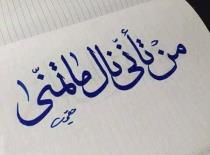 من تأنّى نال ما تمنّى